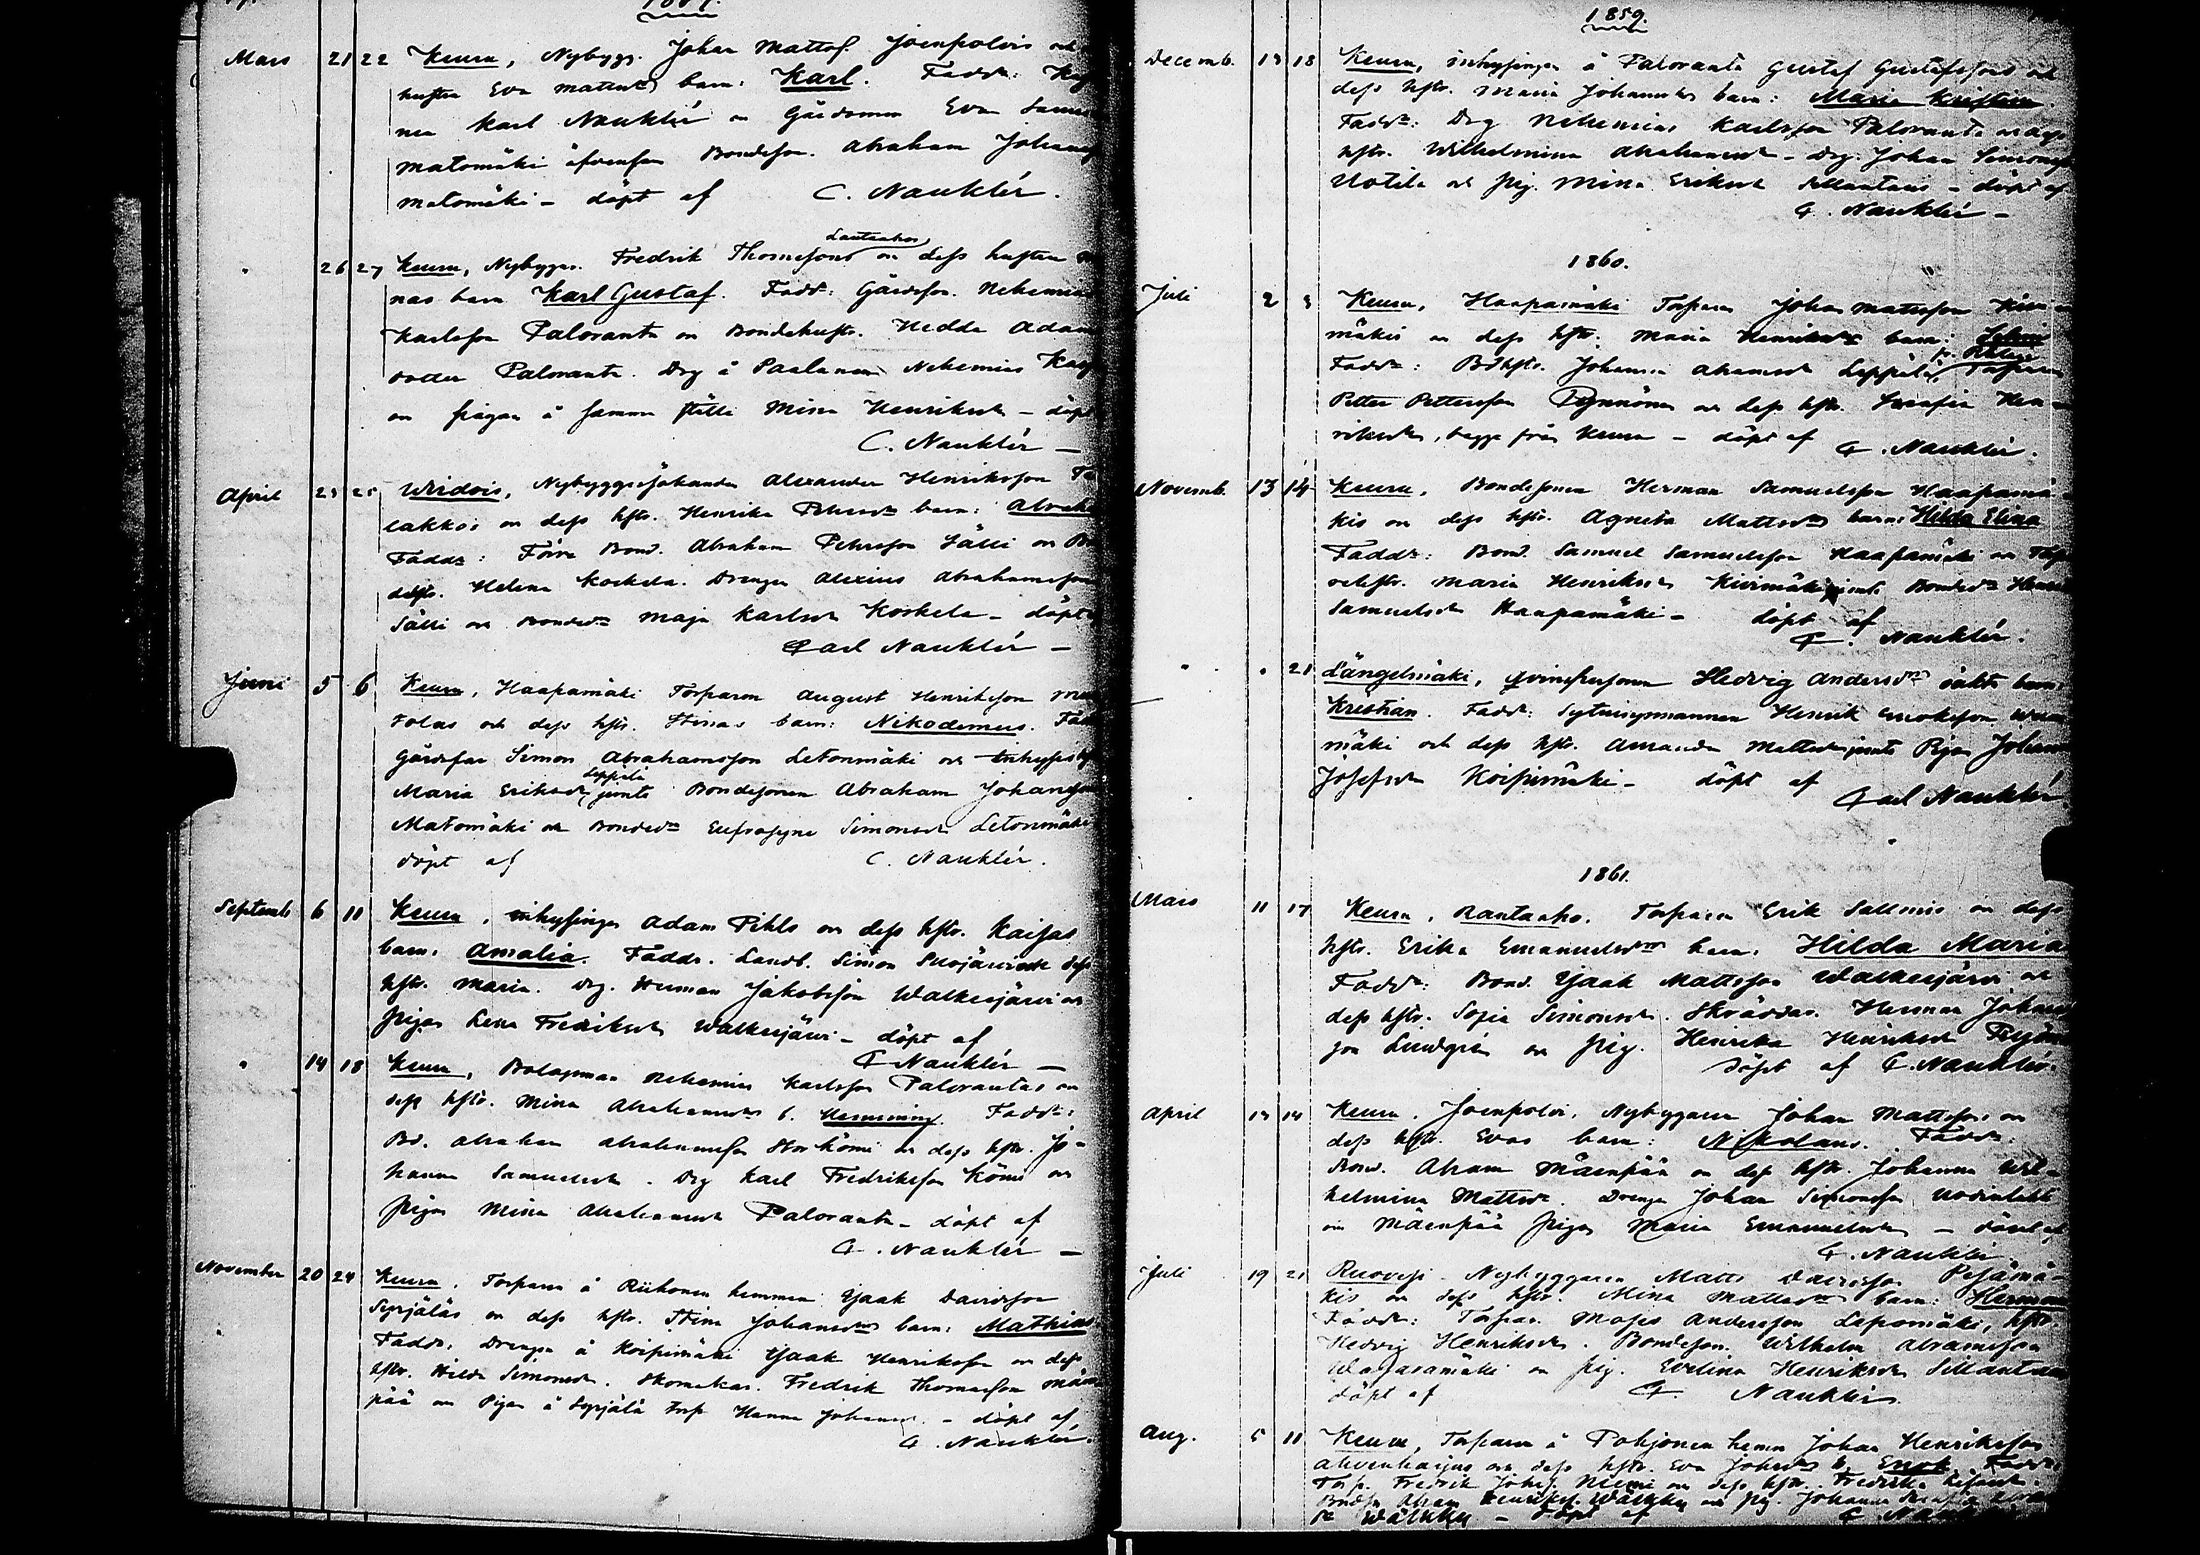 1859.
Mars 21 22 Keuru, Nybygg. Johan Mattss. Joenpolvis och
hustru Eva Mattsd:rs barn: Karl. Fadd:r:
Karl Nauklér o Gårdsmn Eva
Matomäki äfvensom Bondeson. Abraham Johans
Matomäki – döpt af C. Nauklér.
26 27 Keuru, Nybyggr. Fredrik Thomessons Lautaahos o dess hustru
nas barn Karl Gustaf. Fadd: Gårdsson. Nehemias
Karlsson Paloranta o Bondehustr. Hedda Adams
dotter Paloranta. Drg å Paalanen Nehemias Karls
o pigan å samma ställe Mina Henriksd:r – döpt
C. Nauklér –
April 23 25 Wirdois, Nybyggsåboanden Alexander Henriksson
lakkos o dess hstr. Henrika Petersd:rs barn:
Fadd:r: Förre Bond. Abraham Petersson Sälli o
dess. Helena Koskela. Drengen Alexius Abrahamsson
Sälli o Bonded:r Maja Karlsd:r Koskela – döpt
Carl Nauklér –
Juni 5 6 Keuru, Haapamäki Torparen August Henriksson
tolas och dess hstr. Stinas barn: Nikodemus. Fad
Gårdsfar Simon Abrahamsson Letonmäki och Inhyses
Maria Eriksd:r Leppälä jemte Bondesonen Abraham Johansson
Matomäki och Bonded:r Eufrosyne Simonsd:r Letonmäki
döpt af C. Nauklér.
Septemb 6 11 Keuru, inhysingen Adam Pihls o dess hstr. Kaisas
barn: Amalia. Faddr. Landb. Simon Suojärvi och dess
hstr. Maria. Drg. Herman Jakobsson Walkeejärvi o
pigan Lena Fredriksd:r Walkeejärvi – döpt af
C Nauklér –
" 14 18 Keuru, Bolagsman Nehemias Karlsson Palorantas o
dess hstr. Mina Abrahamsd:rs b. Hemming. Fadd:r:
Bd. Abraham Abrahamsson Storkömi o dess hstr. Jo-
hanna Samuelsd:r. Drg Karl Fredriksson Kömi o
pigan Mina Abrahamsd:r Paloranta – döpt af
C. Nauklér –
November 20 24 Keuru. Torparen å Riihonen hemman Isaak Davidsson
Syrjäläs o dess hstr. Stina Johansd:rs barn: Mathias
Faddr. Drengen å Koipimäki Isaak Henriksson o dess
hstr. Hilda Simonsd:r. Skomakar. Fredrik Thomasson Mäen
pää o Pigan å Syrjälä torp Hanna Johansd:r – döpt af
C. Nauklér.
1859.
Decemb. 13 18 Keuru, inhysingen å Paloranta Gustaf Gustafssons och
dess hstr. Maria Johansd:rs barn: Maria Kristina.
Fadd:r: Drg Nehemias Karlsson Paloranta o dess
hstr. Wilhelmina Abrahamsd:r – Drg. Johan Simonss
Uotila och pig. Mina Eriksd:r Sillantaus – döpt af
C. Nauklér –
1860.
Juli 2 3 Keuru, Haapamäki Torparen Johan Mattsson Kivi-
mäkis o dess hstr. Maria Henriksd:rs barn:
Fadd:r: Bdhstr. Johanna Abramsd:r Leppälä, Torparen
Petter Pettersson Pynnönen o dess hstr. Serafia Hen-
riksd:r, begge från Keuru – döpt af C. Nauklér.
Novemb. 13 14 Keuru, Bondesonen Herman Samuelsson Haapamä-
kis o dess hstr. Agneta Mattsd:rs barn: Hilda Elina
Fadd:r: Bond. Samuel Samuelsson Haapamäki o Torp
hstr. Maria Henriksd:r Kivimäki jemte Bonded:r
Samuelsd:r Haapamäki – döpt af
C. Nauklér.
" " 21 Längelmäki, Qvinspersonen Hedvig Andersd:rs oäkta barn:
Kristian. Fadd:r: Sytningsmannen Henrik
mäki och dess hstr. Amanda Mattsd:r jemte Pigan Johanna
Josefsd:r Koipimäki – döpt af Carl Nauklér
1861.
Mars 11 17 Keuru, Rantaaho. Torparen Erik Sallmis o dess
hstr. Erika Emanuelsd:rs barn: Hilda Maria
Fadd:r: Bond. Isaak Mattsson Walkeejärvi och
dess hstr. Sofia Simonsd:r. Skräddar. Herman Johans
son Lindgrén o pig. Henrika Henriksd:r
döpt af C. Nauklér.
April 13 14 Keuru. Joenpolvi. Nybyggaren Johan Mattssons o
dess hstr. Evas barn: Nikolaus. Fadd:r:
Bond. Abram Mäenpää o dess hstr. Johanna Wil-
helmina Mattsd:r. Drengen Johan Simonsson
o Mäenpää pigan Maria Emanuelsd:r – döpt af
C. Nauklér
Juli 19 21 Ruovesi. Nybyggaren Matts Davidsson Petäjämä-
kis o dess hstr. Mina Mattsd:rs barn: Herman
Fadd:r: Torpar. Moses Andersson Lapomäki, hstr.
Hedvig Henriksd:r. Bondeson. Wilhelm Abramsson
o pig. Evelina Henriksd:r Sillantaus
döpt af C. Nauklér
Aug. 5 11 Keuru, Torparen å Pohjonen hemm Johan Henriksson
Ahvenharjus o dess hstr. Eva Johansd:rs b. Enok. Fadd:r
Torp. Fredrik Johss. Niemi o dess hstr. Fredrika
Bondes. Abram Henrikss. Wälkky o pig. Johanna
Wälkky – döpt af C. Nauklér